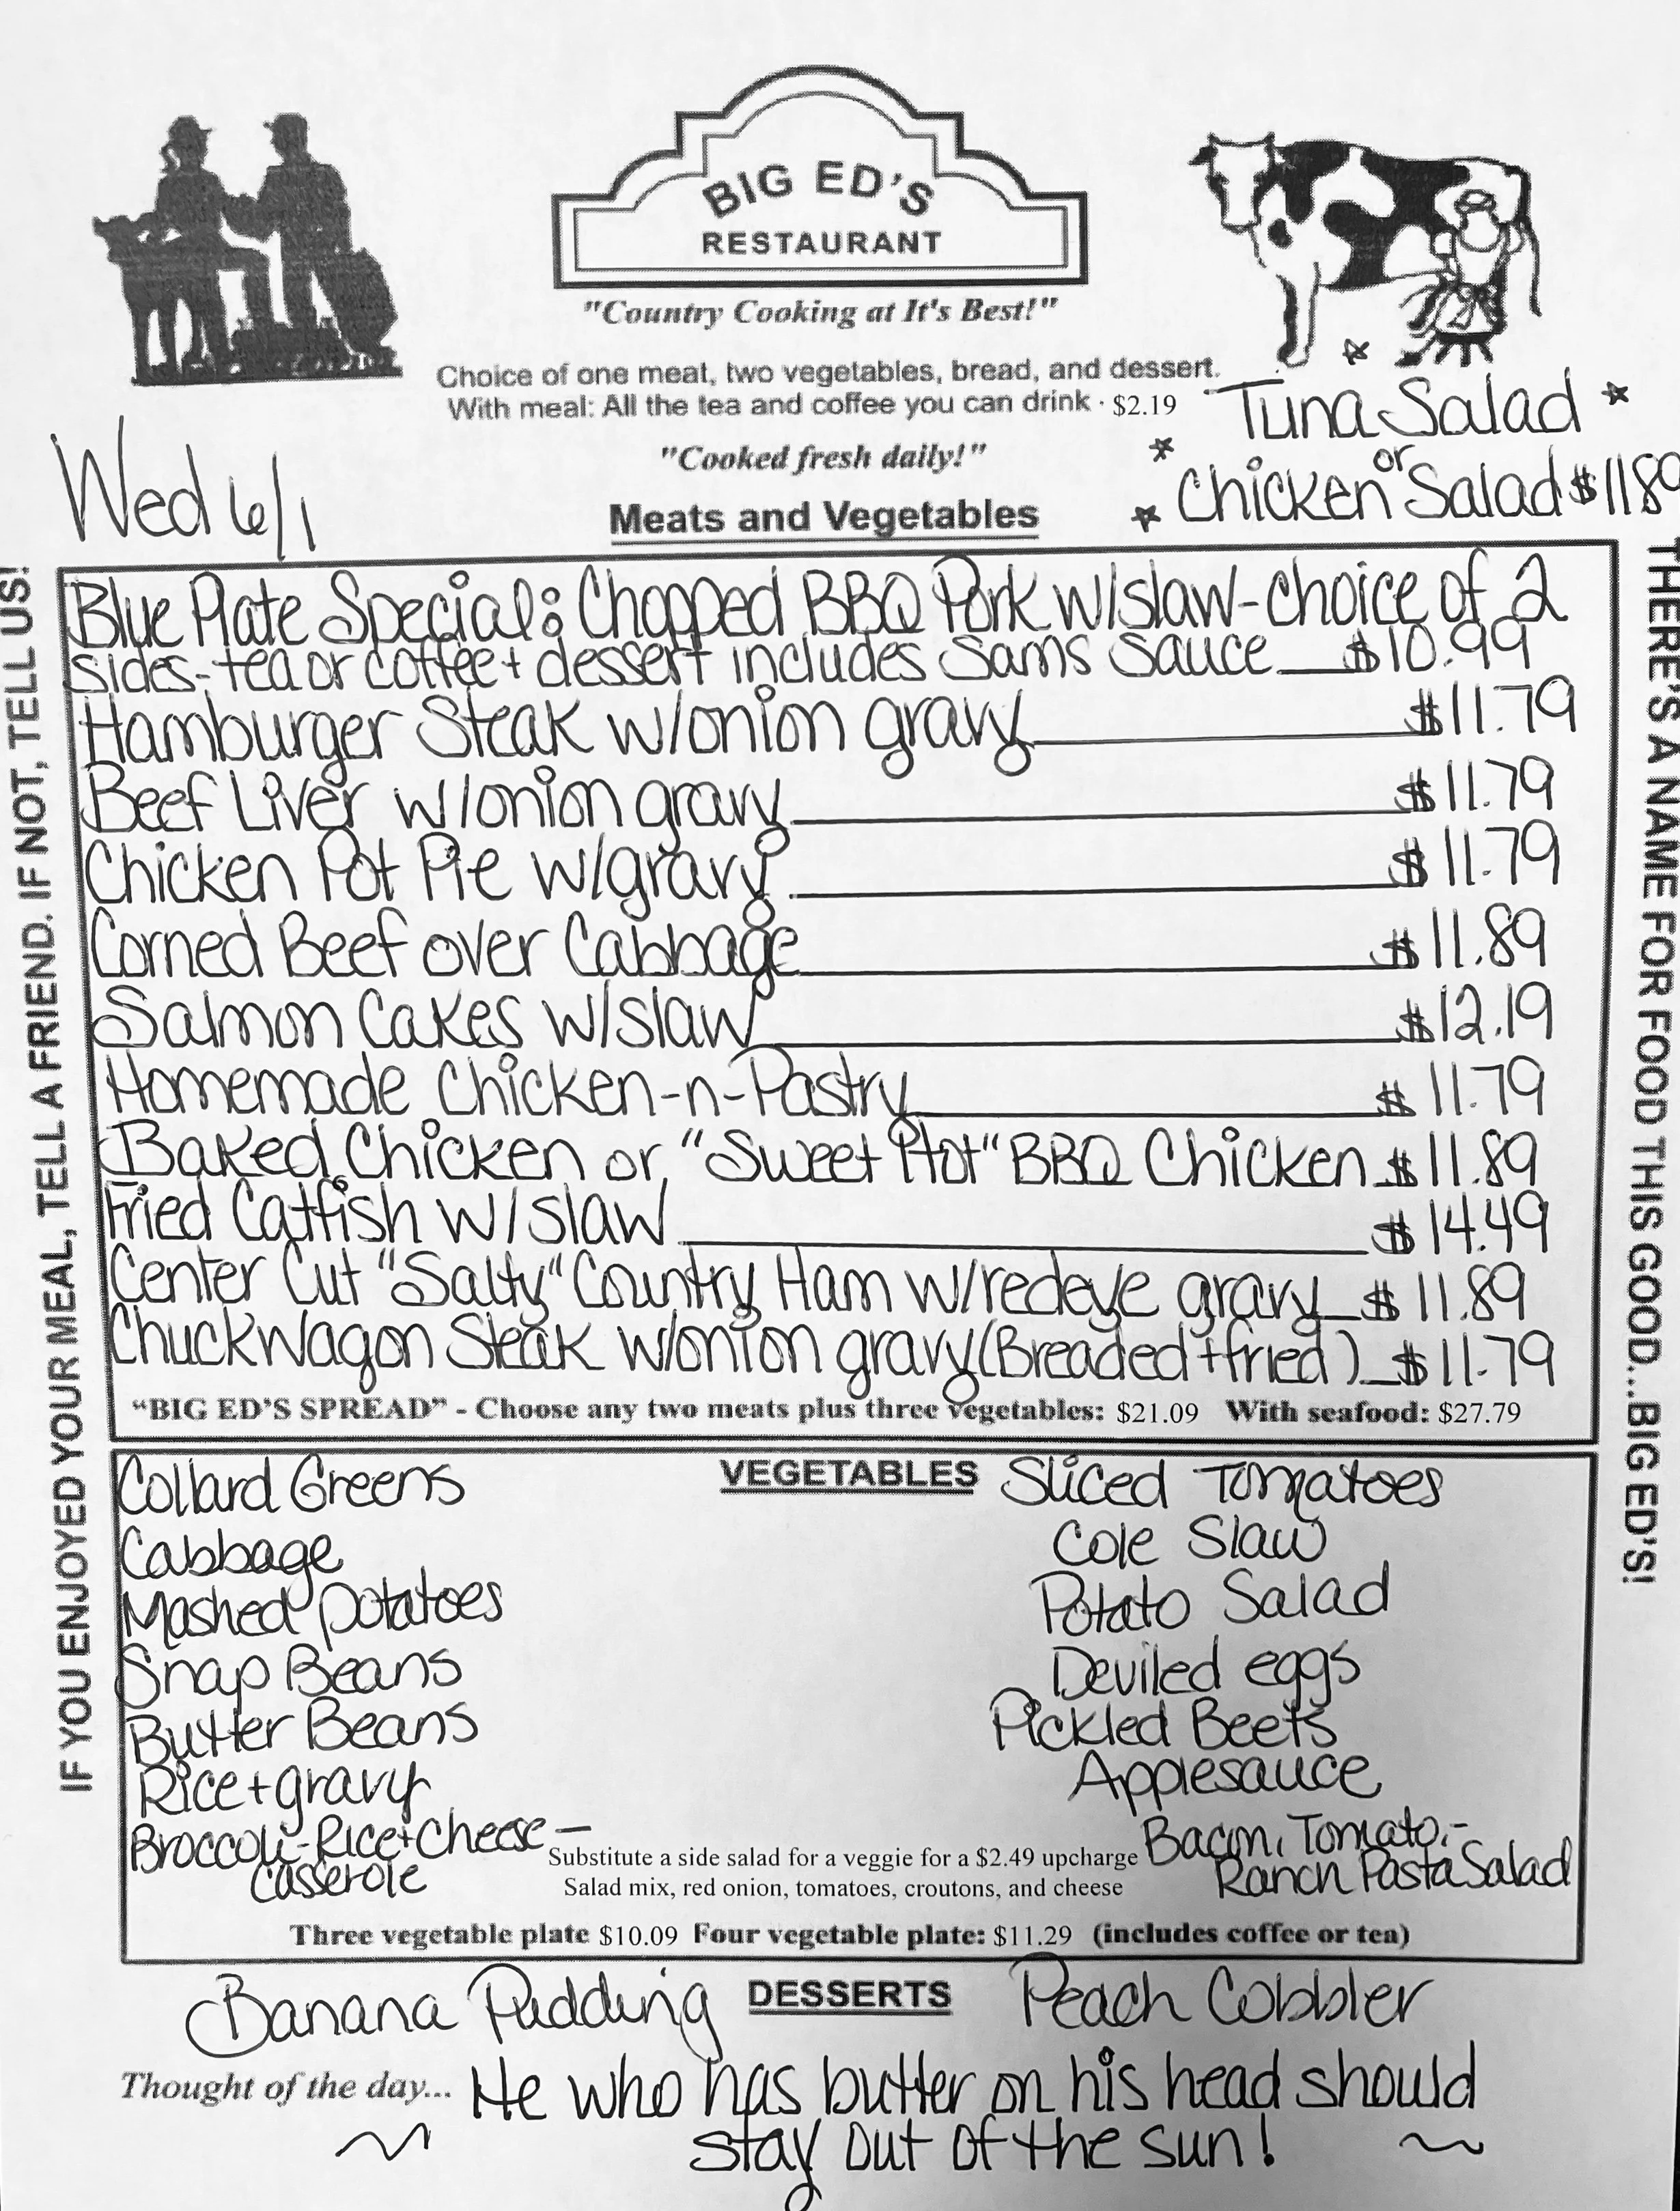 BIG ED'S
RESTAURANT
"Country Cooking at It's Best!"
Choice of one meat, two vegetables, bread, and dessert.
With meal: All the tea and coffee you can drink · $2.19
"Cooked fresh daily!"
Tuna Salad
or
Chicken Salad $11.89
Wed 6/1
Meats and Vegetables
Blue Plate Special: Chopped BBQ Pork w/slaw-choice of 2
sides-tea or coffee + dessert includes Sams Sauce $10.99
Hamburger Steak w/onion gravy $11.79
Beef Liver w/onion gravy $11.79
Chicken Pot Pie w/gravy $11.79
Corned Beef over Cabbage $11.89
Salmon Cakes w/slaw $12.19
Homemade Chicken-n-Pastry $11.79
Baked Chicken or "Sweet Hot" BBQ Chicken $11.89
Fried Catfish w/slaw $14.49
Center Cut "Salty" Country Ham w/redeye gravy $11.89
Chuckwagon Steak w/onion gravy (Breaded + fried) $11.79
"BIG ED'S SPREAD" - Choose any two meats plus three vegetables: $21.09 With seafood: $27.79
VEGETABLES
Collard Greens
Cabbage
Mashed potatoes
Snap Beans
Butter Beans
Rice + gravy
Broccoli-Rice + Cheese -
casserole
Sliced Tomatoes
Cole Slaw
Potato Salad
Deviled eggs
Pickled Beets
Applesauce
Bacon, Tomato, -
Ranch Pasta Salad
Substitute a side salad for a veggie for a $2.49 upcharge
Salad mix, red onion, tomatoes, croutons, and cheese
Three vegetable plate $10.09 Four vegetable plate: $11.29 (includes coffee or tea)
DESSERTS
Banana Pudding
Peach Cobbler
Thought of the day... He who has butter on his head should
stay out of the sun!
IF YOU ENJOYED YOUR MEAL, TELL A FRIEND. IF NOT, TELL US!
THERE'S A NAME FOR FOOD THIS GOOD...BIG ED'S!